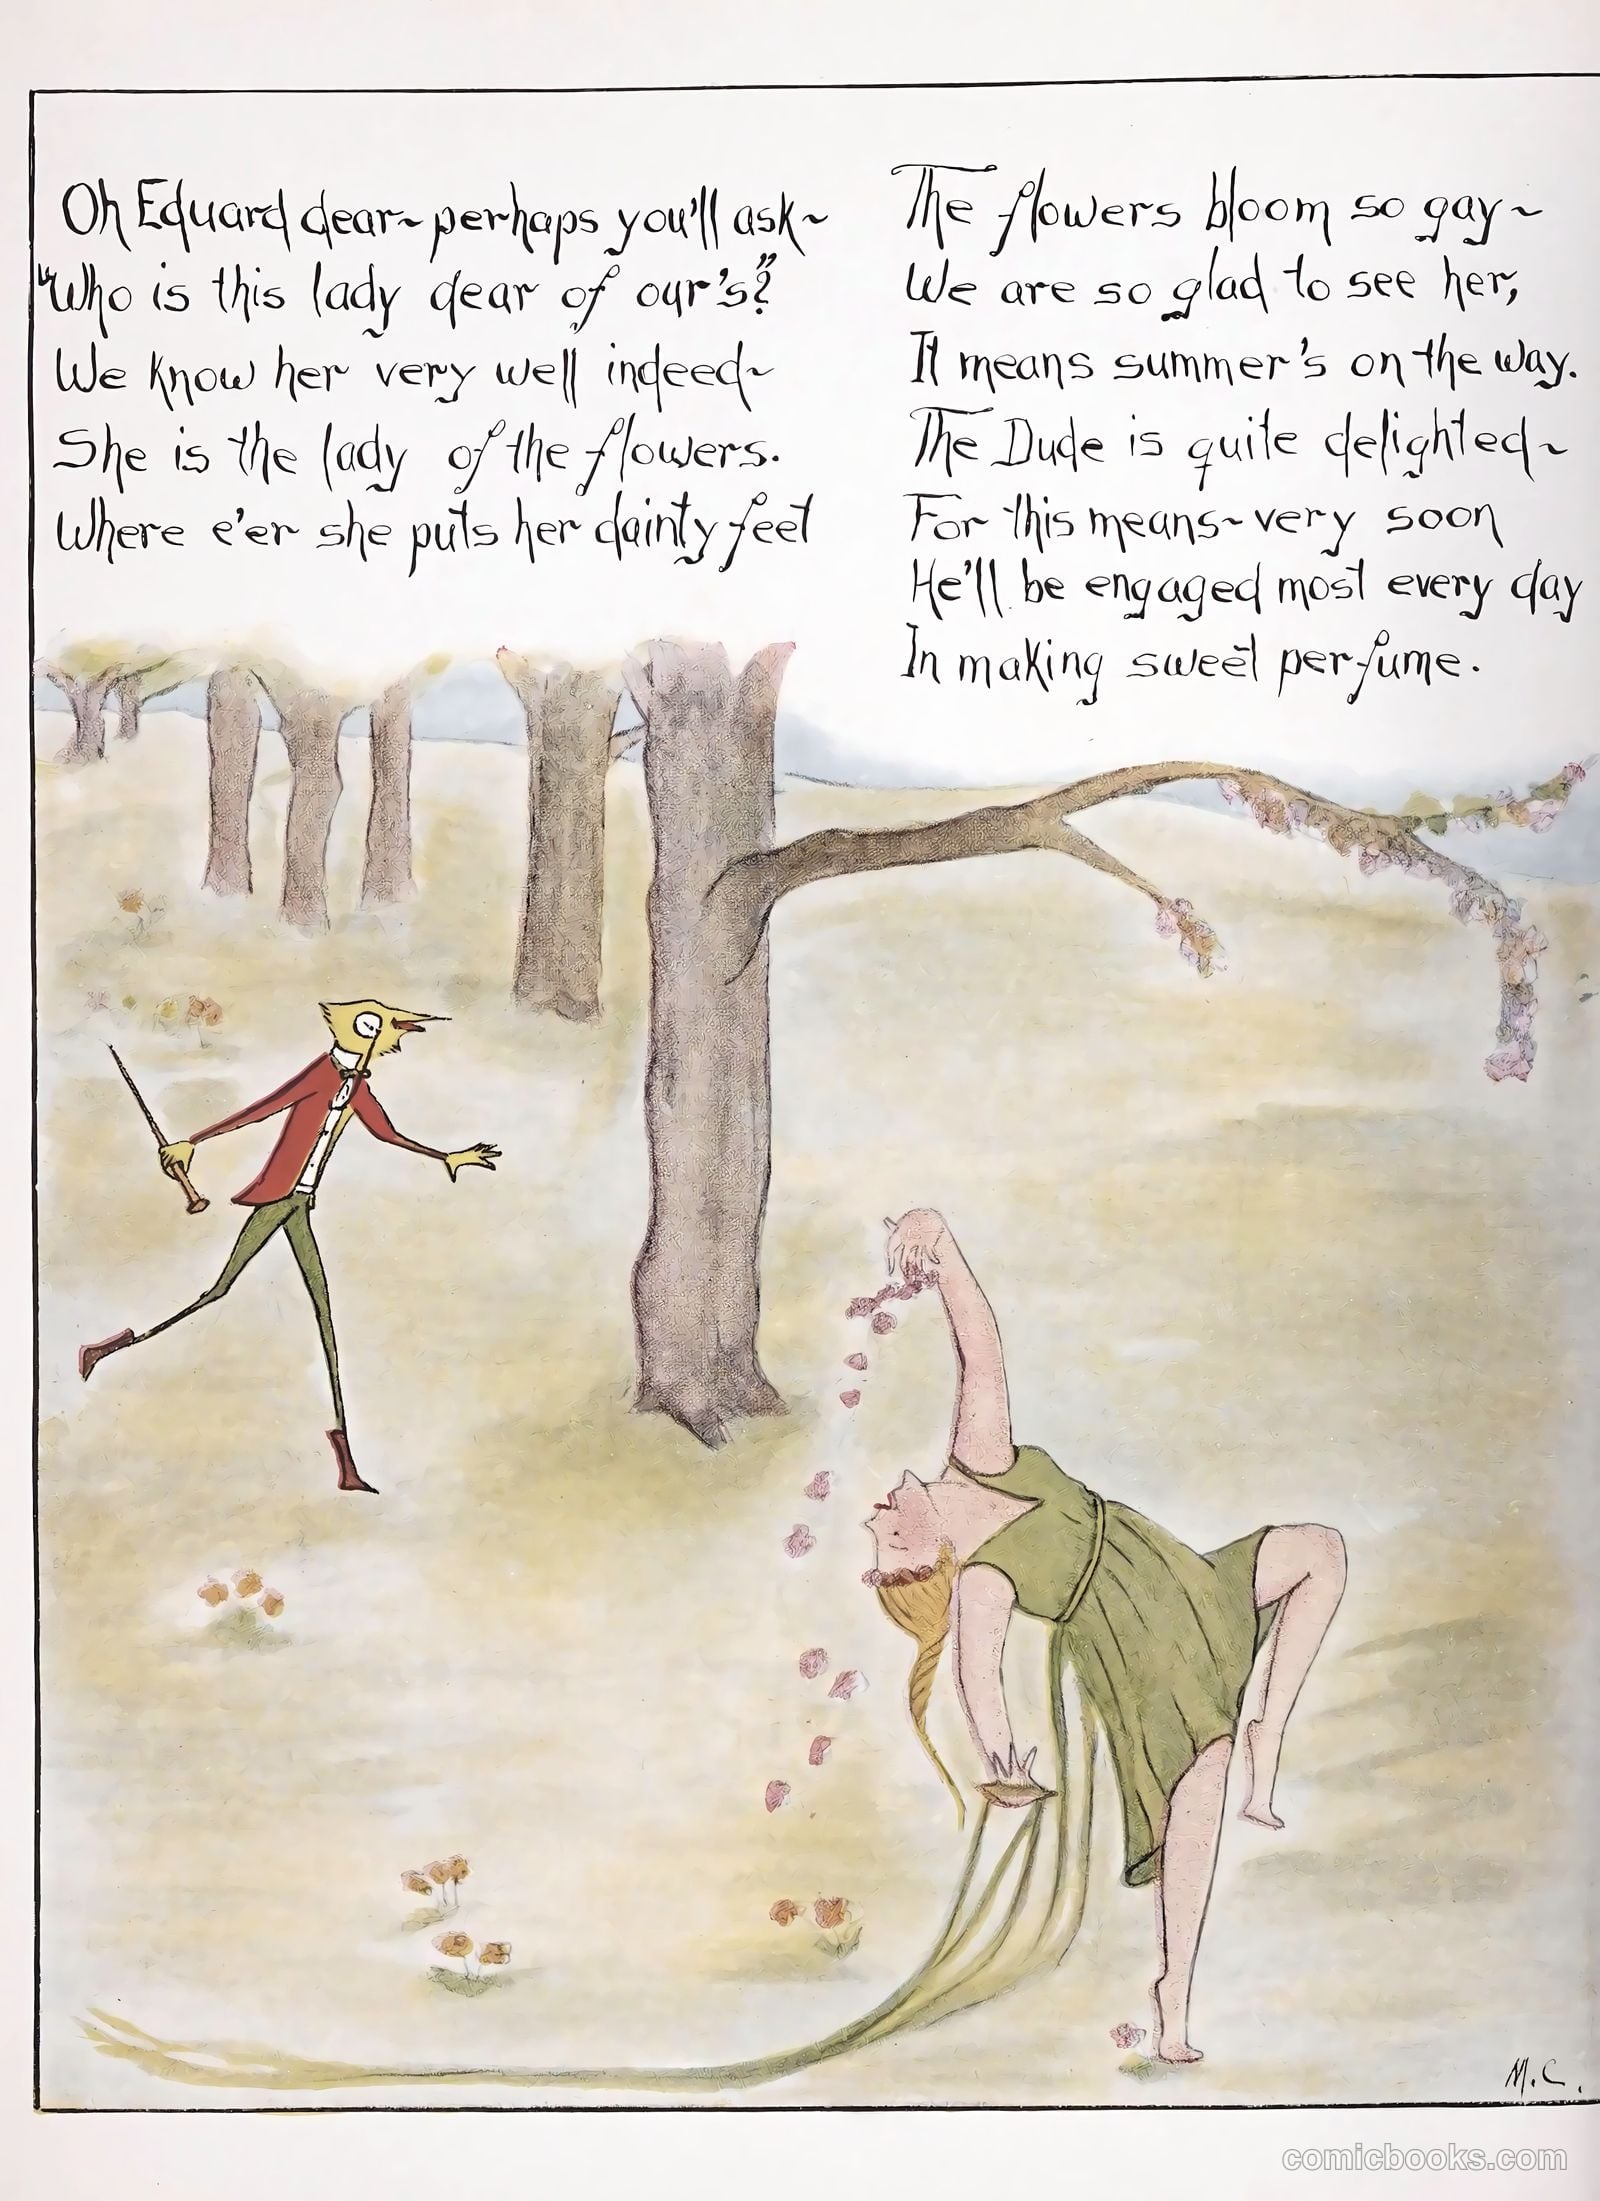 Oh Eduard dear~ perhaps you'll ask~
"Who is this lady dear of our's?"
We know her very well indeed~
She is the lady of the flowers.
Where e'er she puts her dainty feet
The flowers bloom so gay~
We are so glad to see her,
It means summer's on the way.
The Dude is quite delighted~
For this means~ very soon
He'll be engaged most every day
In making sweet perfume.
M.C.
comicbooks.com